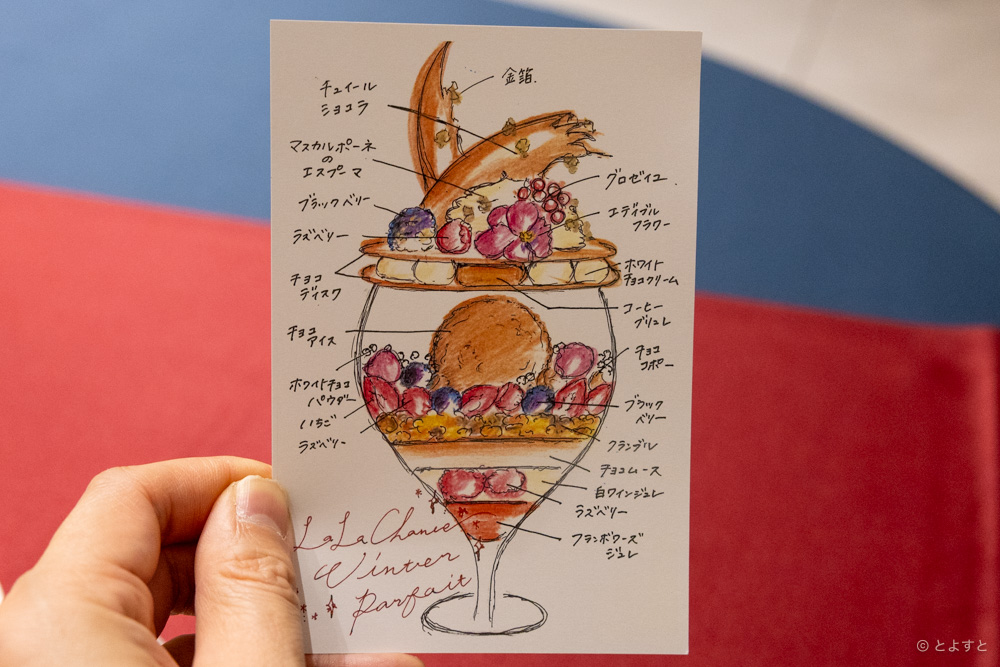 金箔.
チュイール
ショコラ
マスカルポーネ
の
エスプーマ
ブラックベリー
ラズベリー
チョコ
ディスク
チョコ
アイス
ホワイトチョコ
パウダー
いちご
ラズベリー
グロゼイユ
エディブル
フラワー
ホワイト
チョコクリーム
コーヒー
ブリュレ
チョコ
コポー
ブラック
ベリー
クランブル
チョコムース
白ワインジュレ
ラズベリー
フランボワーズ
ジュレ
LaLa Chance
Winter
Parfait
© とよすと